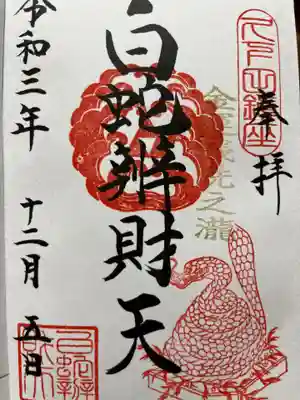 奉拝
金運錢洗之瀧
白蛇辨財天
令和三年 十二月 五日